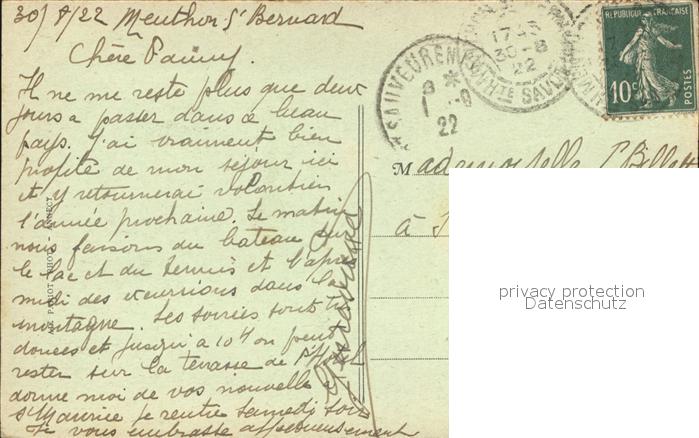 30/8/22 Menthon St Bernard
Chère Fanny.
Il ne me reste plus que deux
jours a passer dans ce beau
pays. J'ai vraiment bien
profité de mon séjour ici
et y retournerai volontiers
l'année prochaine. Le matin
nous faisons du bateau sur
le lac et du tennis et l'après
midi des excursions dans la
montagne. Les soirées sont
douces et jusqu'a 10H on peut
rester sur la terrasse de l'Hotel
donne moi de vos nouvelles a
St Maurice je rentre samedi soir
Je vous embrasse affectueusement
SAUVETERRE
1 -9
22
17
30-8
22
HTE SAVOIE
REPUBLIQUE FRANÇAISE
10c
POSTES
Mademoiselle P Billott
à
privacy protection
Datenschutz